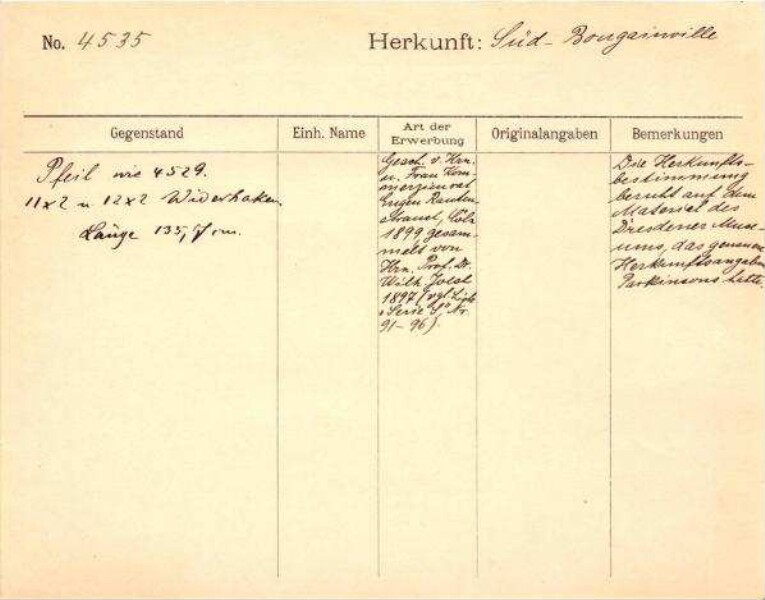 No. 4535
Herkunft: Süd-Bougainville
Gegenstand
Einh. Name
Art der Erwerbung
Originalangaben
Bemerkungen
Pfeil wie 4529.
11x2 u 12x2 Widerhaken.
Länge 135,7 cm.
Gesch. v. Hrn.
u. Frau Kom-
merzienrat
Eugen Rauten-
strauch, Cöln
1899 gesam-
melt von
Hrn. Prof. Dr.
Wilh. Joest
1897 (vgl.
Serie S, Nr.
91-96).
Die Herkunfts-
bestimmung
beruht auf dem
Material des
Dresdener Muse-
ums, das genaue
Herkunftsangaben
Parkinsons hatte.